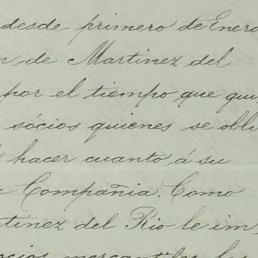 desde primero de Enero
de Martinez del
por el tiempo que
sócios quienes se obli
hacer cuanto á su
Compañia. Como
tinez del Rio le im